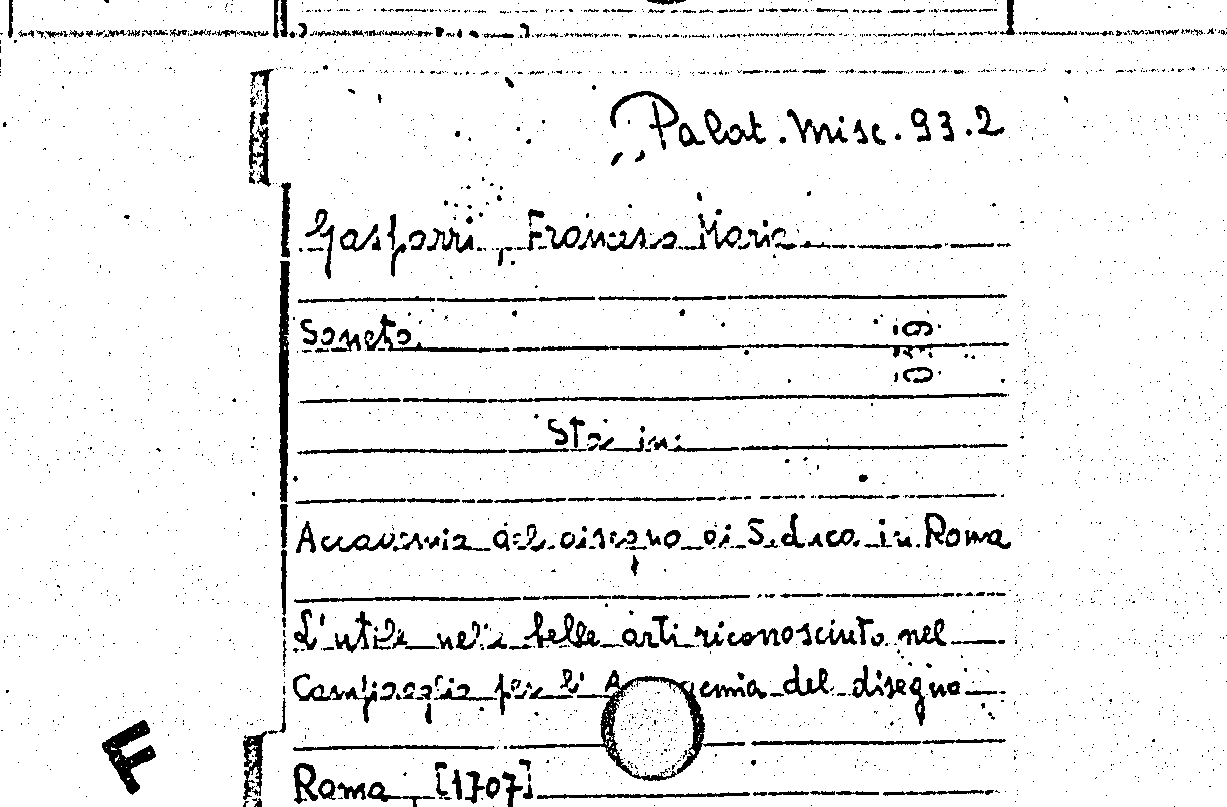 Palat. Misc. 93.2
Gasparri, Francesco Maria.
Soneto.
Sta in:
Accademia del disegno di S. Luca in Roma
L'utile nelle belle arti riconosciuto nel
Campidoglio per l' Accademia del disegno
Roma, [1707]
F